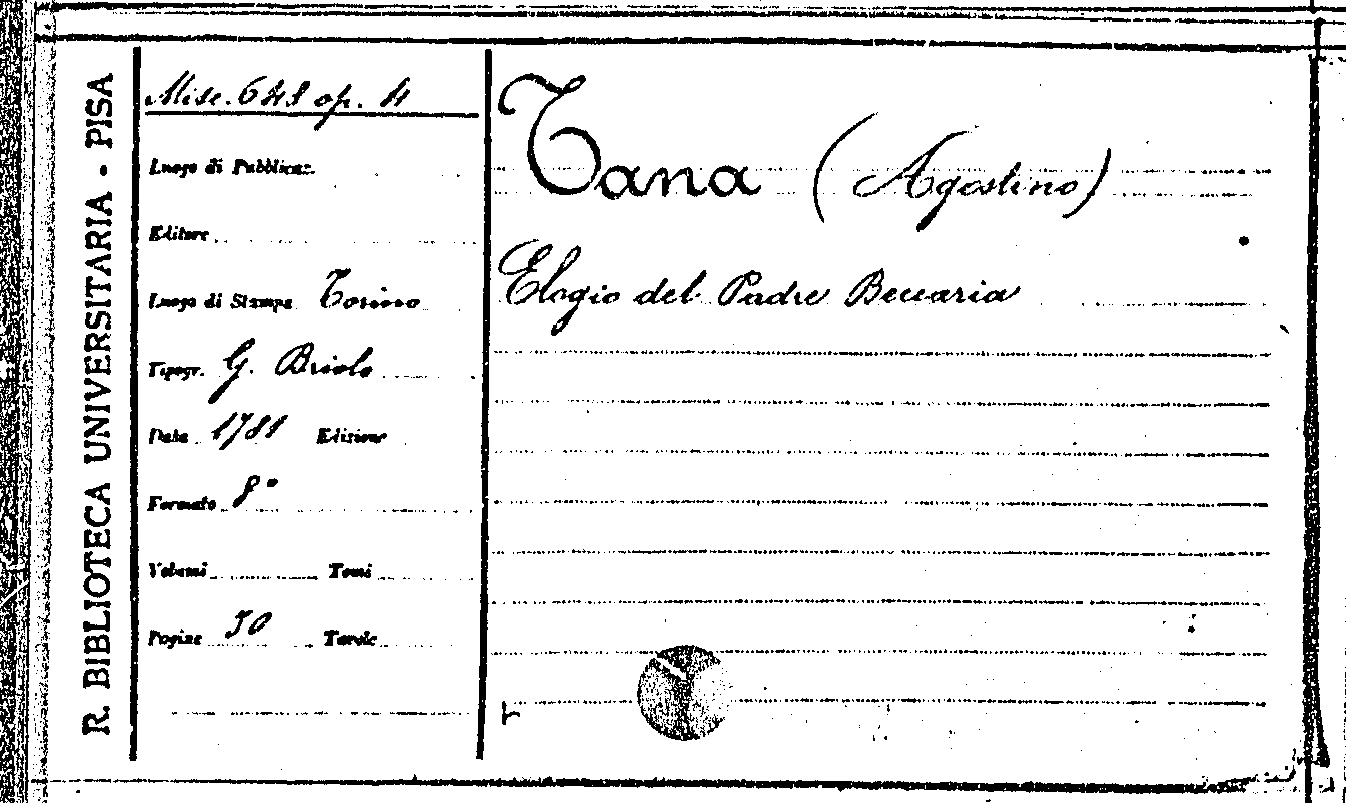 R. BIBLIOTECA UNIVERSITARIA - PISA
Misc. 648 op. 4
Luogo di Pubblicaz.
Editore
Luogo di Stampa Torino
Tipogr. G. Briolo
Data 1781 Edizione
Formato 8°
Volumi Tomi
Pagine 50 Tavole
Tana (Agostino)
Elogio del Padre Beccaria